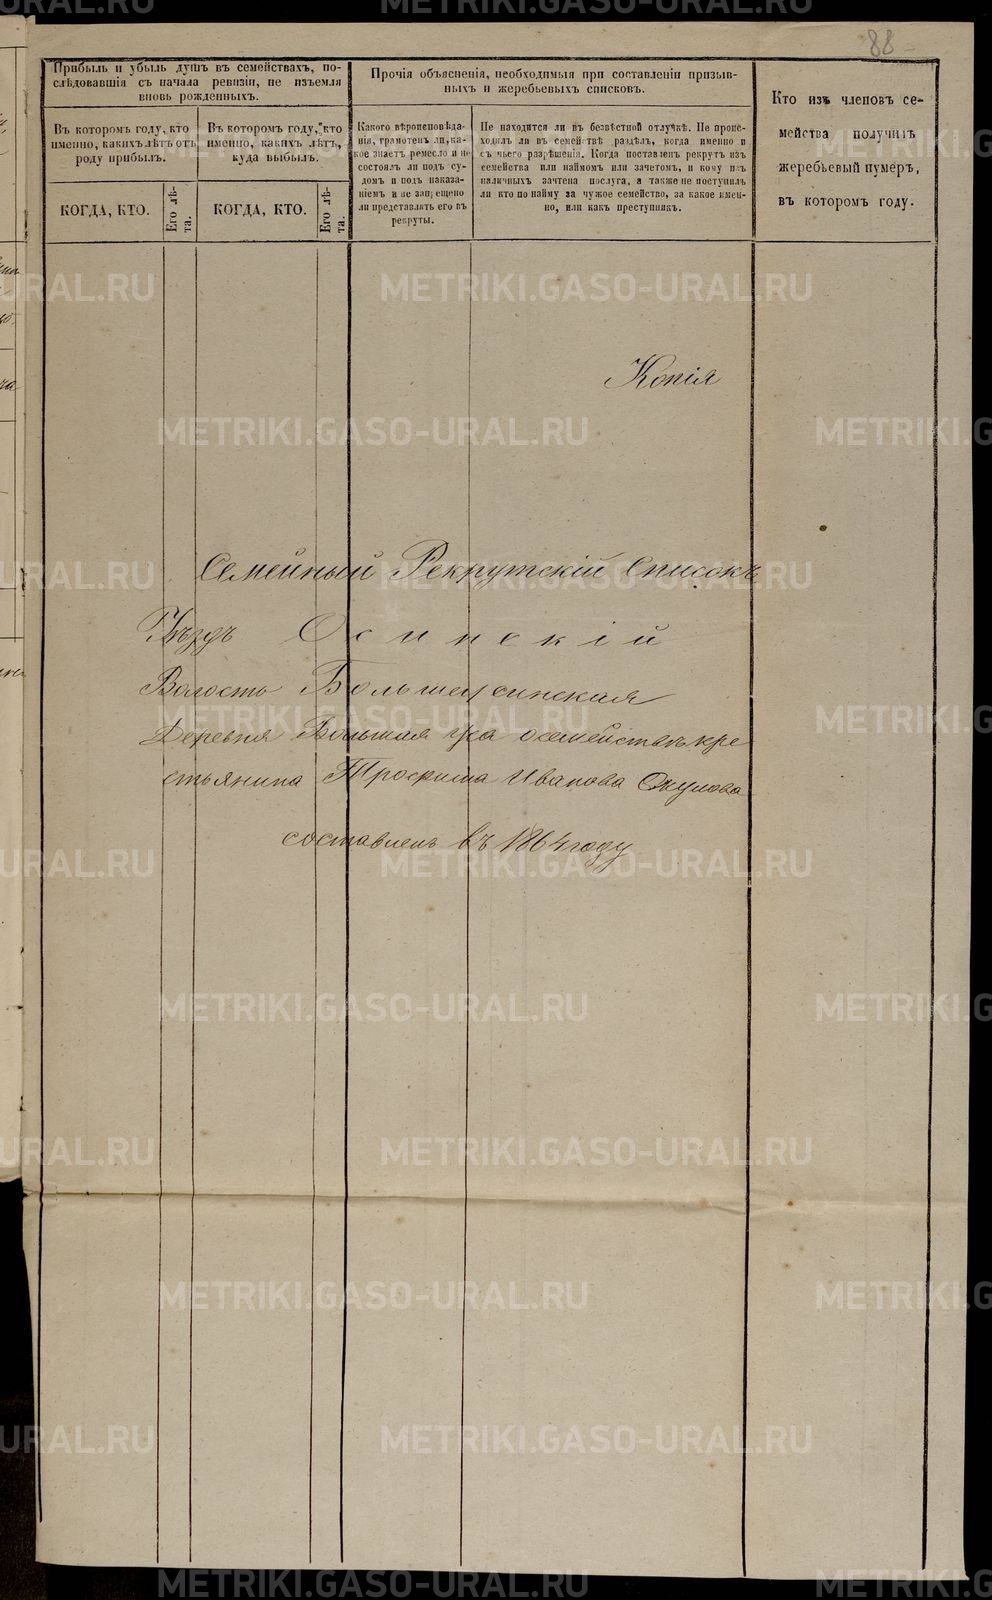 88
Прибыль и убыль душъ въ семействахъ, по-
слѣдовавшія съ начала ревизіи, не изъемля
вновь рожденныхъ.
Прочія объясненія, необходимыя при составленіи призыв-
ныхъ и жеребьевыхъ списковъ.
Кто изъ членовъ се-
мейства получилъ
жеребьевый нумеръ,
въ которомъ году.
Въ которомъ году, кто
именно, какихъ лѣтъ отъ
роду прибылъ.
Въ которомъ году, кто
именно, какихъ лѣтъ,
куда выбылъ.
Какого вѣроисповѣда-
нія, грамотенъ ли, ка-
кое знаетъ ремесло и не
состоялъ ли подъ су-
домъ и подъ наказа-
ніемъ и не запрещено
ли представлять его въ
рекруты.
Не находится ли въ безвѣстной отлучкѣ. Не проис-
ходилъ ли въ семействѣ раздѣлъ, когда именно и
съ чьего разрѣшенія. Когда поставленъ рекрутъ изъ
семейства или наймомъ или зачетомъ, и кому изъ
наличныхъ зачтена послуга, а также не поступилъ
ли кто по найму за чужое семейство, за какое имен-
но, или какъ преступникъ.
КОГДА, КТО.
Его лѣ-
та.
КОГДА, КТО.
Его лѣ-
та.
Копія
Семейный Рекрутскій Списокъ
Уѣздъ Осинскій
Волость Большеусинская
Деревня Большая Уса о семействѣ кре
стьянина Трофима Иванова Окулова
составленъ въ 1864 году
METRIKI.GASO-URAL.RU